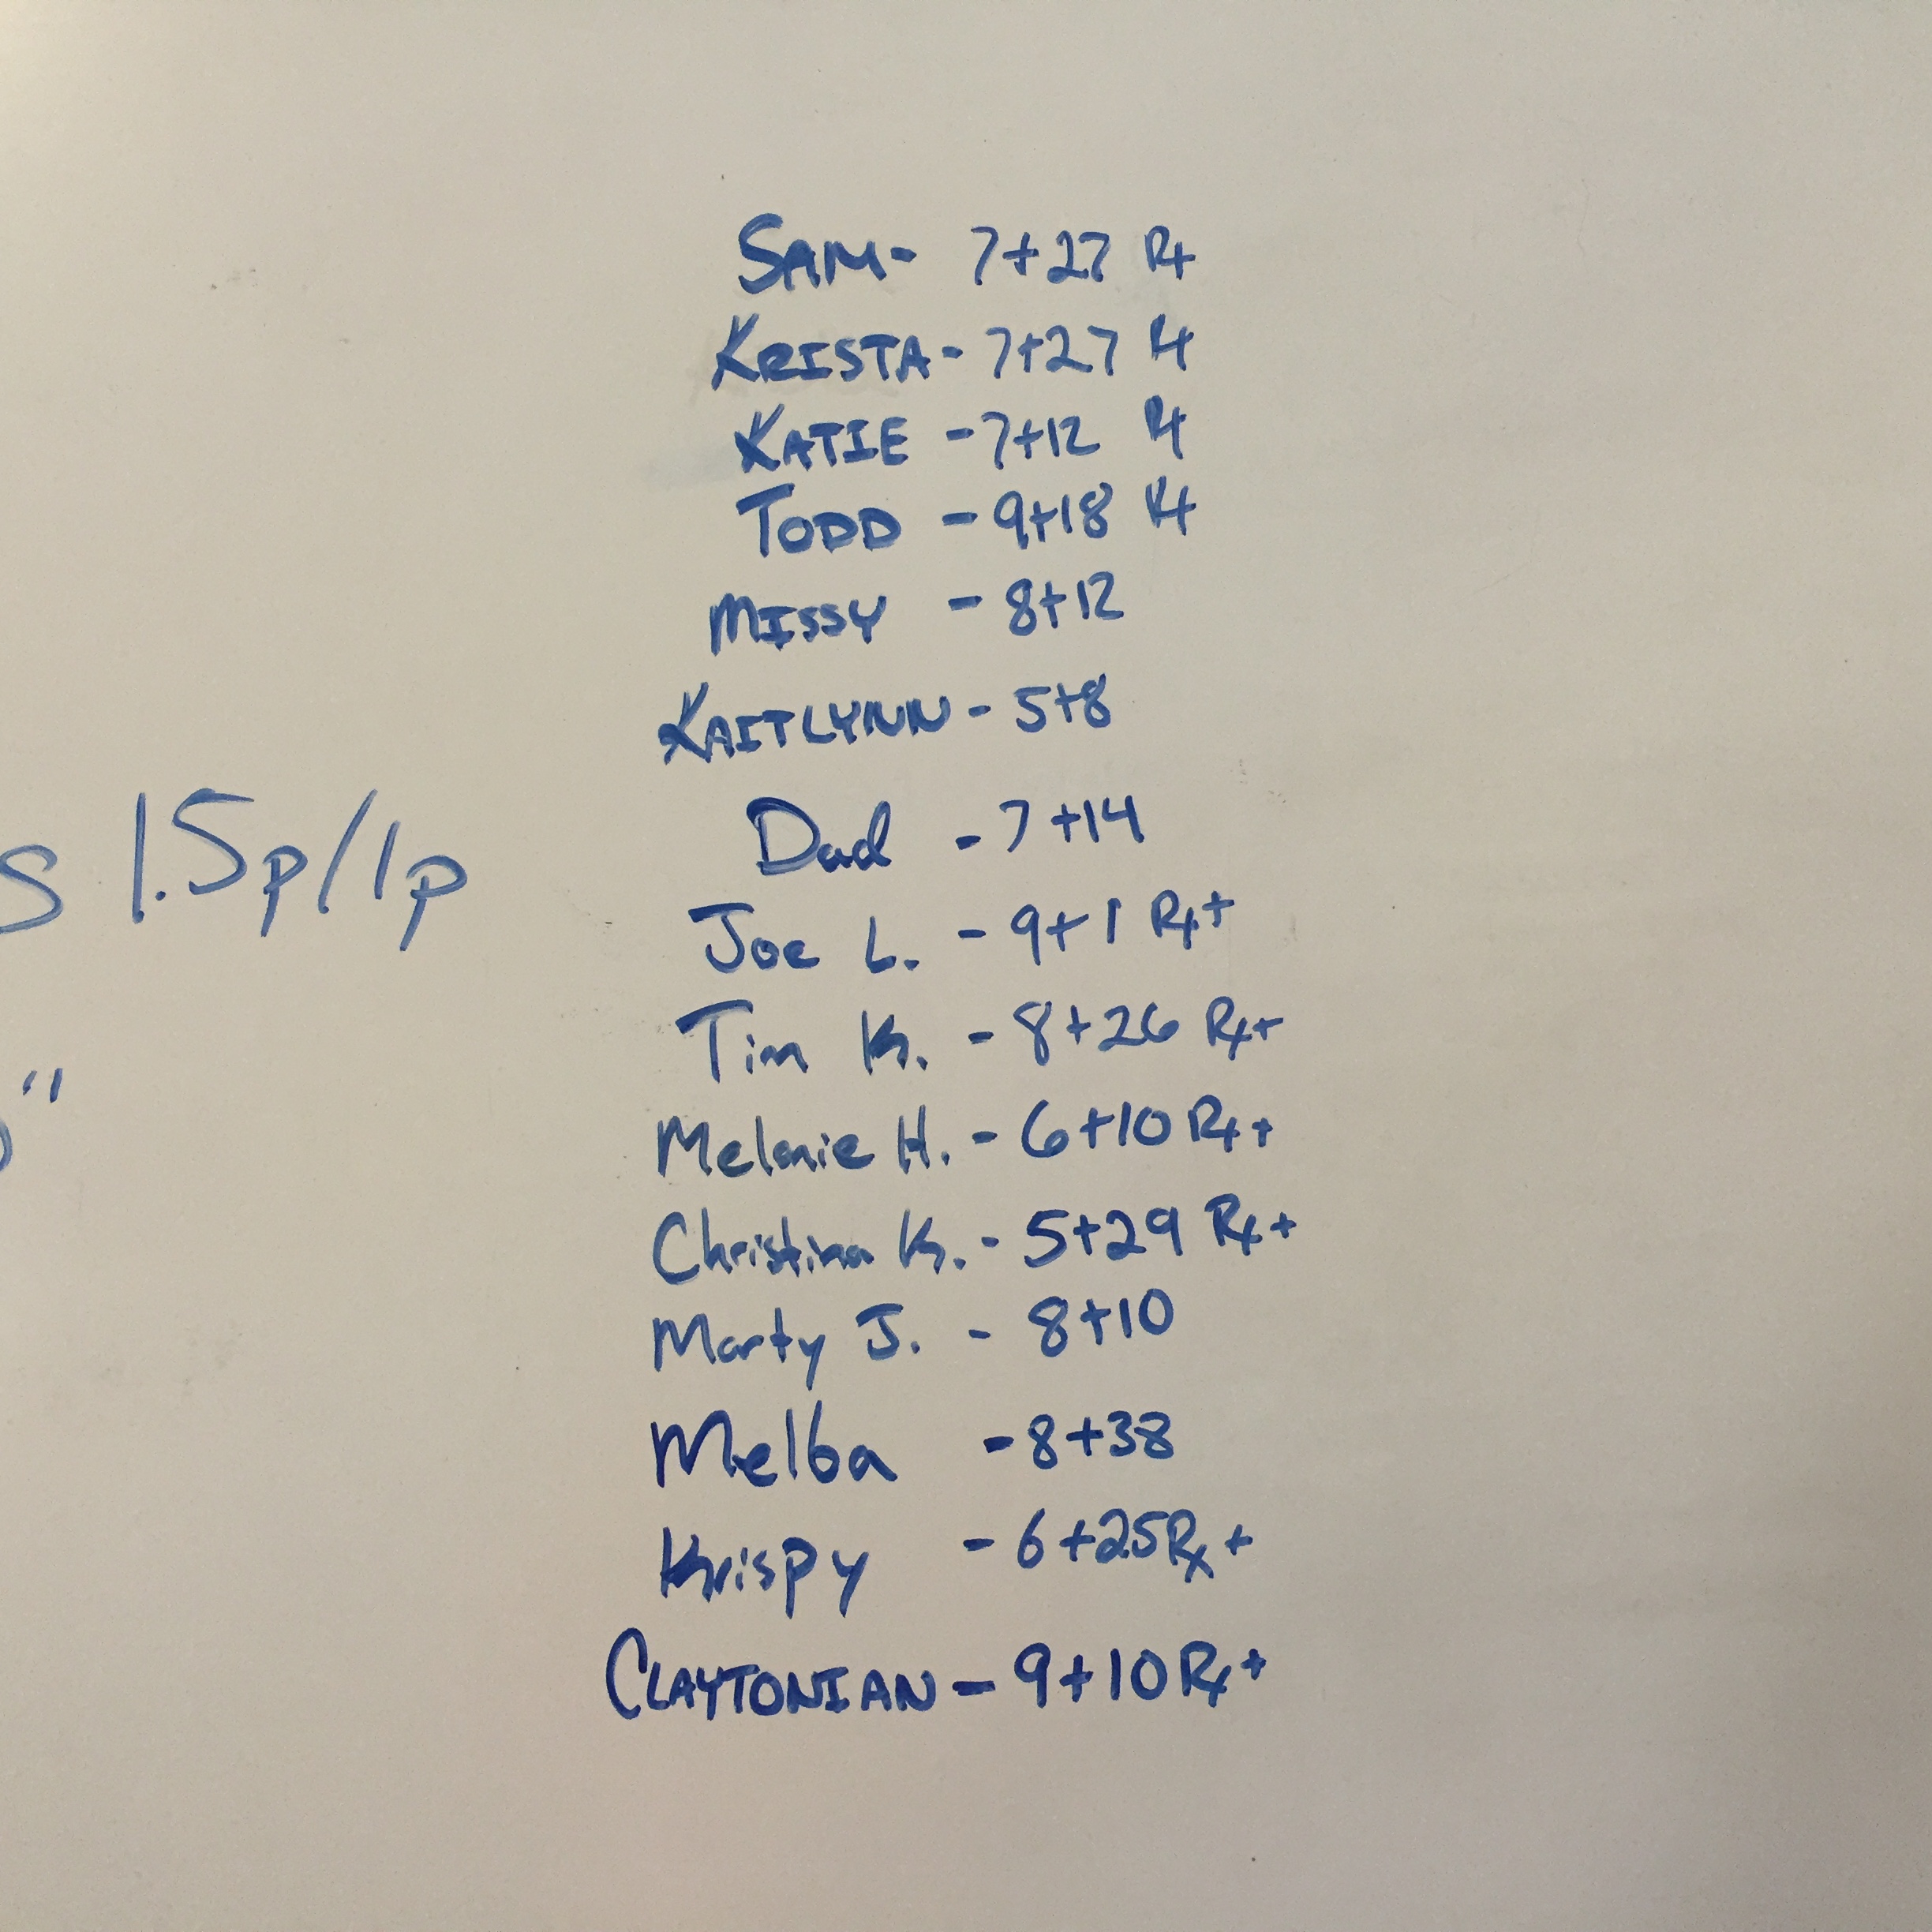 SAM - 7+27 Rx
KRISTA - 7+27 Rx
KATIE - 7+12 Rx
TODD - 9+18 Rx
MISSY - 8+12
KAITLYNN - 5+8
Dad - 7+14
s 1.5p/1p
Joe L. - 9+1 Rx+
Tim K. - 8+26 Rx+
"
Melanie H. - 6+10 Rx+
Christina K. - 5+29 Rx+
Marty J. - 8+10
Melba - 8+38
Krispy - 6+25 Rx+
CLAYTONIAN - 9+10 Rx+